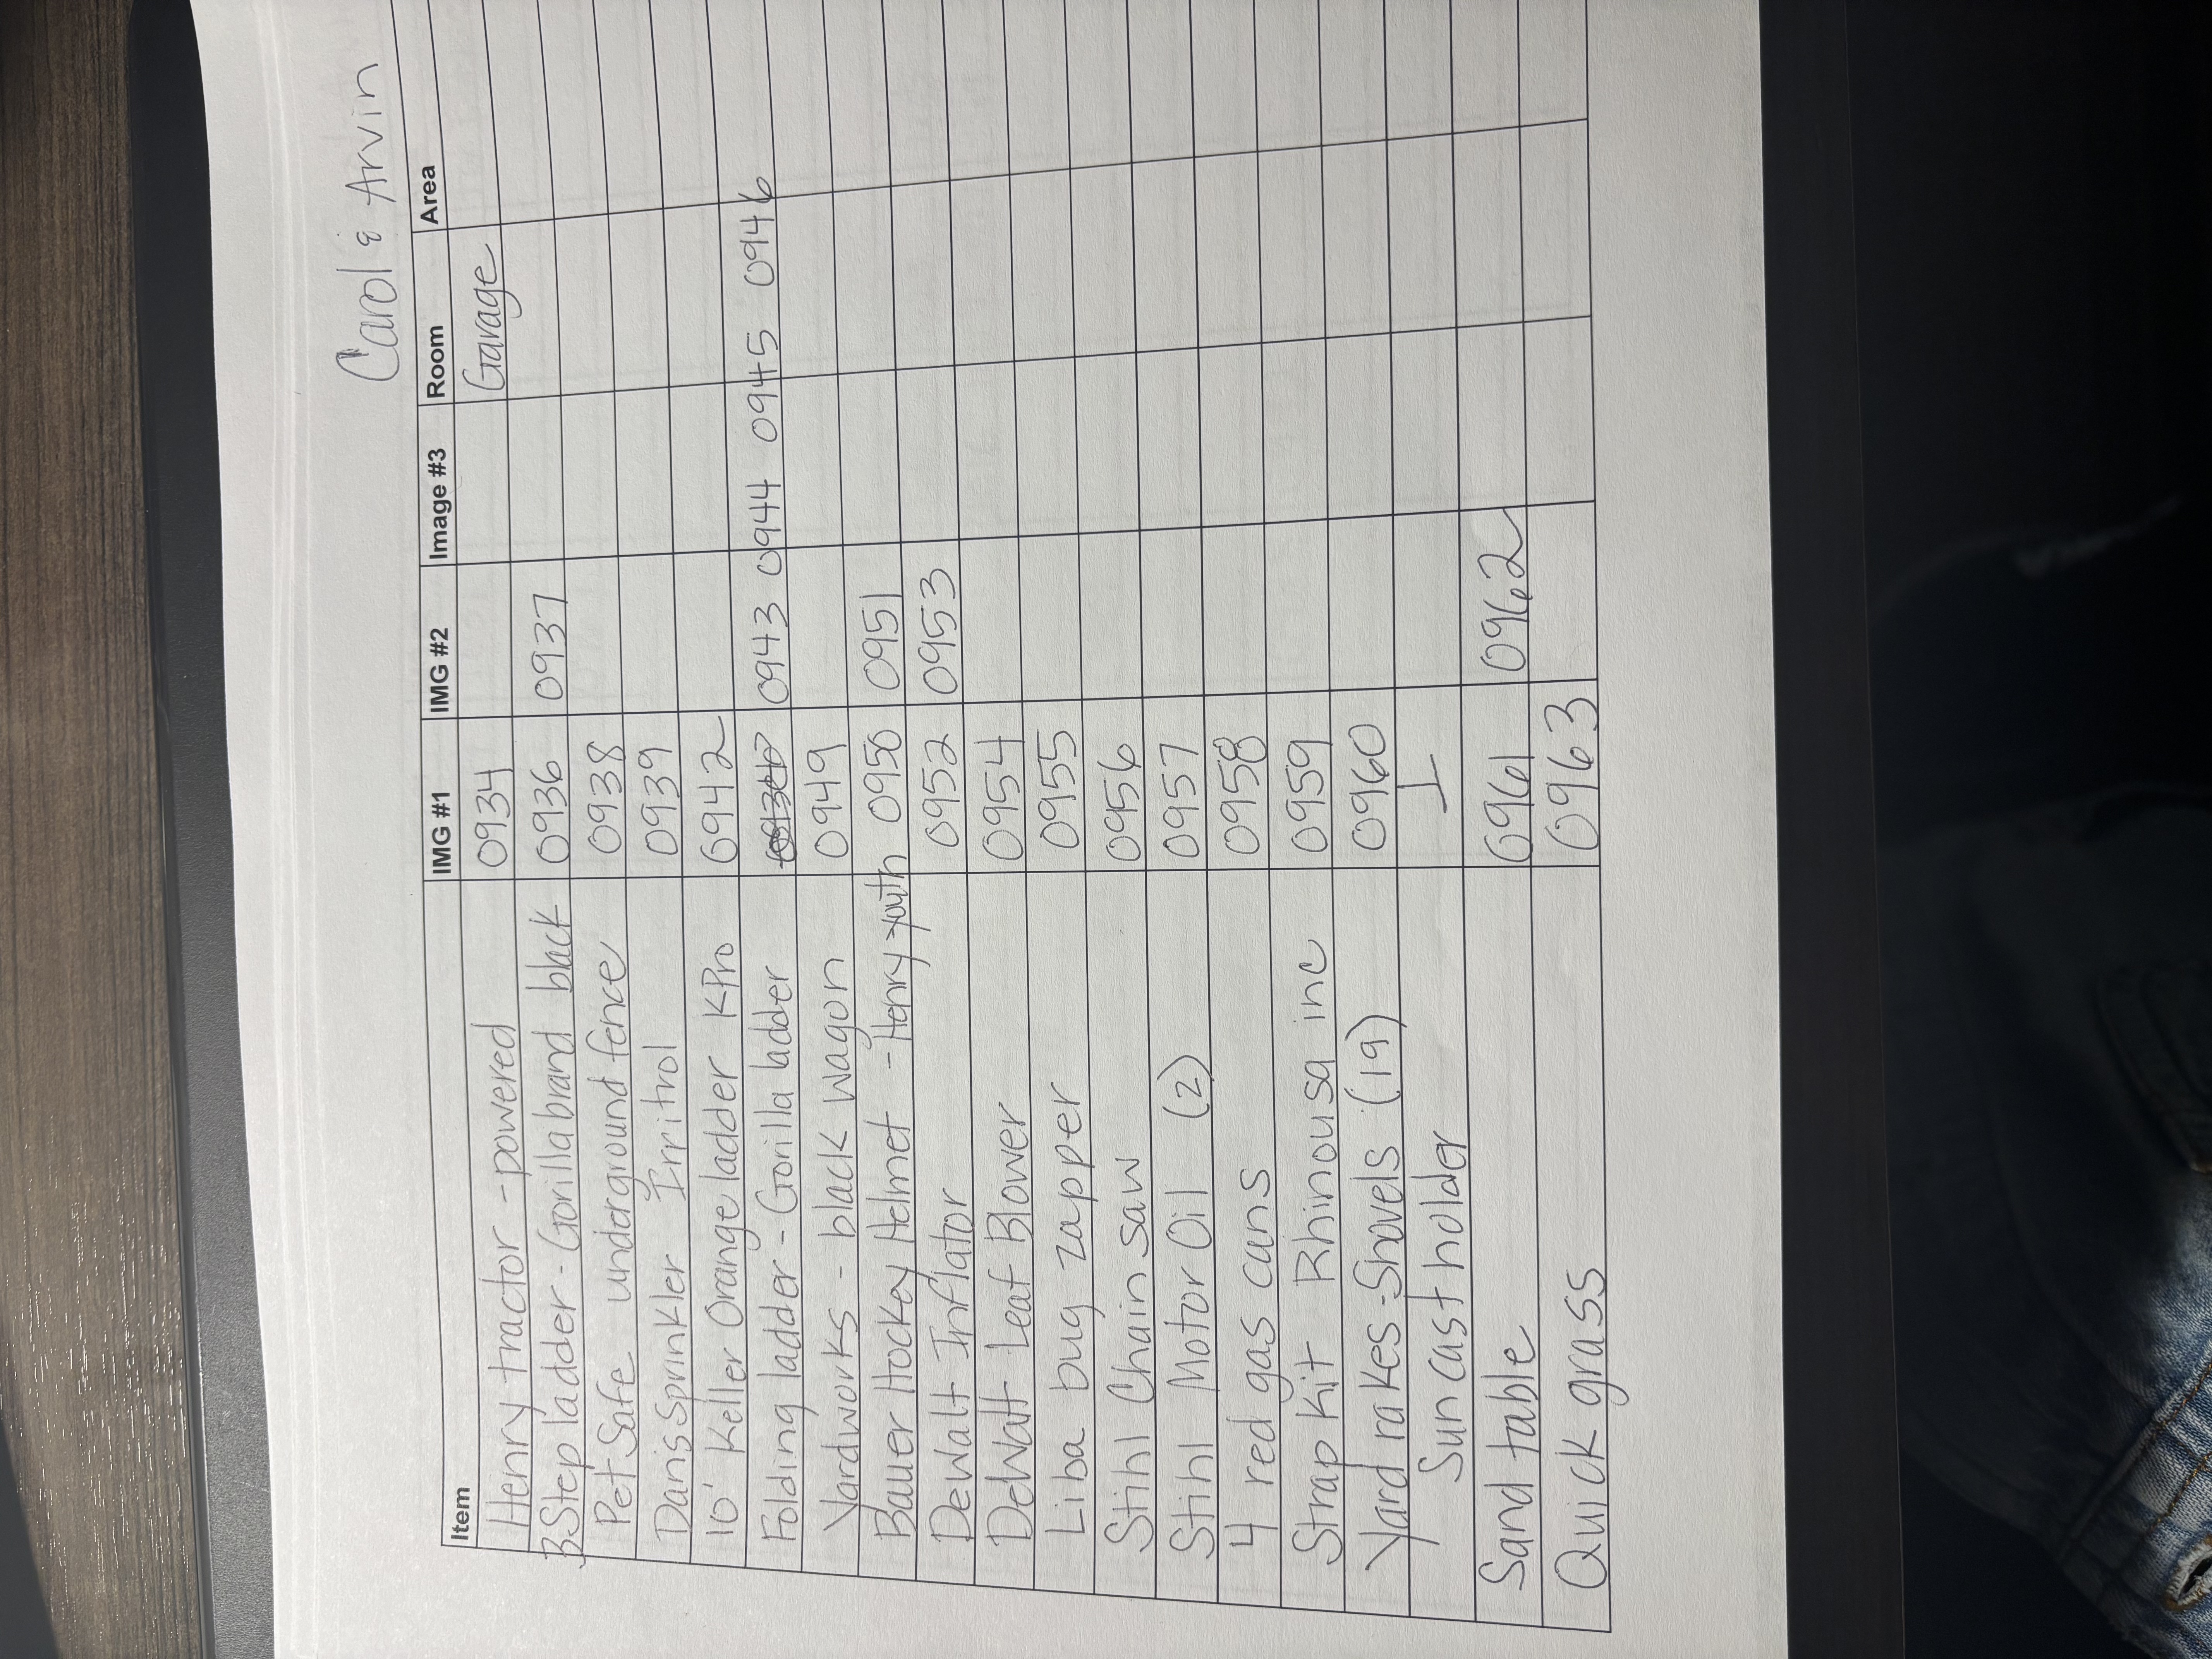 Carol & Arvin
Item IMG #1 IMG #2 Image #3 Room Area
Henry tractor - powered 0934 Garage
3 Step ladder - Gorilla brand black 0936 0937
Pet Safe underground fence 0938
Danis Sprinkler Irritrol 0939
10' Keller Orange ladder KPro 0942
Folding ladder - Gorilla ladder 0943 0944 0945 0946
Yardworks - black wagon 0949
Bauer Hockey Helmet - Henry youth 0950 0951
DeWalt Inflator 0952 0953
DeWalt Leaf Blower 0954
Liba bug zapper 0955
Stihl Chain saw 0956
Stihl Motor Oil (2) 0957
4 red gas cans 0958
Strap Kit Rhinousa inc 0959
Yard rakes - Shovels (19) 0960
Sun cast holder
Sand table 0961 0962
Quick grass 0963